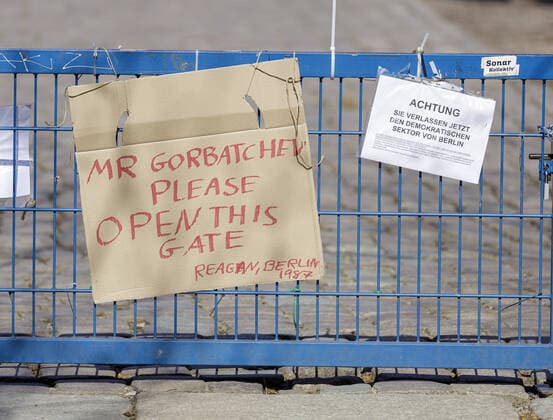 MR GORBATCHEV
PLEASE
OPEN THIS
GATE
REAGAN, BERLIN
1987
Sonar
Kollektiv
ACHTUNG
SIE VERLASSEN JETZT
DEN DEMOKRATISCHEN
SEKTOR VON BERLIN